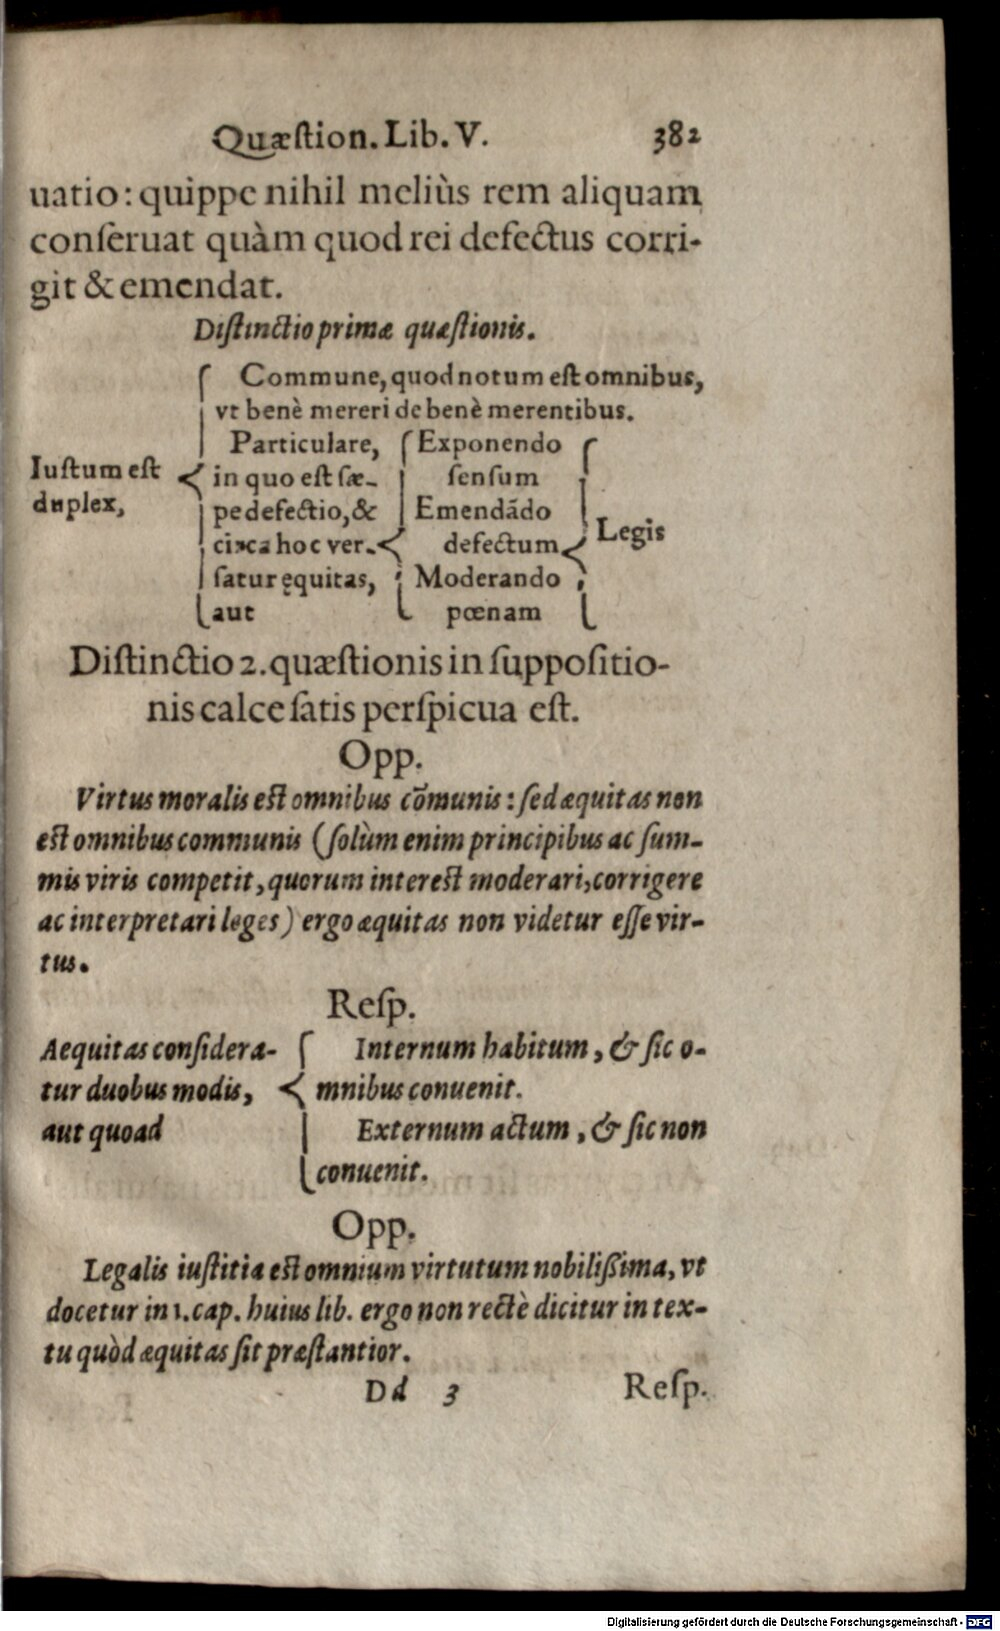 Quæſtion. Lib. V. 382
uatio: quippe nihil meliùs rem aliquam
conſeruat quàm quod rei defectus corri-
git & emendat.
Diſtinctio primæ quæſtionis.
Iuſtum eſt
duplex,
Commune, quod notum eſt omnibus,
vt benè mereri de benè merentibus.
Particulare,
in quo eſt ſæ-
pe defectio, &
circa hoc ver-
ſatur ęquitas,
aut
Exponendo
ſenſum
Emendãdo
defectum
Moderando
pœnam
Legis
Diſtinctio 2. quæſtionis in ſuppoſitio-
nis calce ſatis perſpicua eſt.
Opp.
Virtus moralis eſt omnibus cõmunis: ſed æquitas non
eſt omnibus communis (ſolùm enim principibus ac ſum-
mis viris competit, quorum intereſt moderari, corrigere
ac interpretari leges) ergo æquitas non videtur eſſe vir-
tus.
Reſp.
Aequitas conſidera-
tur duobus modis,
aut quoad
Internum habitum, & ſic o-
mnibus conuenit.
Externum actum, & ſic non
conuenit.
Opp.
Legalis iuſtitia eſt omnium virtutum nobiliſſima, vt
docetur in 1. cap. huius lib. ergo non rectè dicitur in tex-
tu quòd æquitas ſit præſtantior.
Dd 3 Reſp.
Digitalisierung gefördert durch die Deutsche Forschungsgemeinschaft - DFG